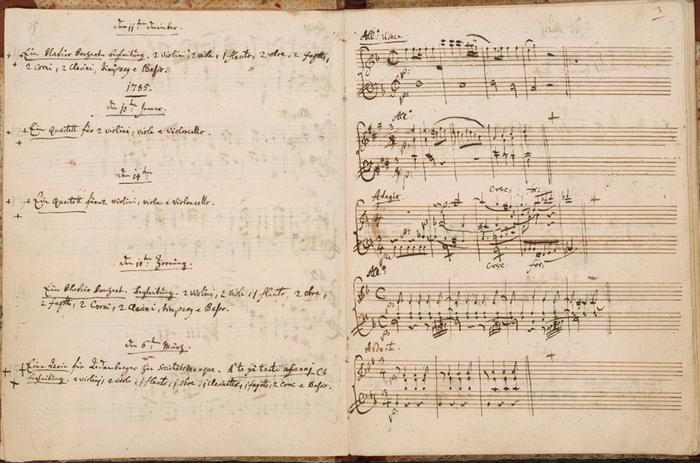 den 11ten December.
Ein klavier konzert. begleitung. 2 violini, 2 viole, 1 flauto, 2 oboe, 2 fagotti,
2 Corni, 2 Clarini, timpany e Basso.
1785.
den 10ten Jenner.
Ein Quartett für 2 violini, viola e violoncello.
den 14ten
Ein Quartett für 2 violini, viola e violoncello.
den 10ten Hornung.
Ein klavier konzert. begleitung. 2 violini, 2 viole, 1 flauto, 2 oboe
2 fagotti, 2 Corni, 2 Clarini, timpany e Basso.
den 6ten März.
Eine Aria für Adamberger zur Societätsmusique. A te
begleitung. 2 violini, 2 viole, 1 flauto, 1 oboe, 1 clarinetto, 1 fagotto, 2 corni e Basso.
3
Allo vivace
p:
p:
Allo
Adagio.
Cresc: for:
p:
p:
Cresc: for:
Allo
p:
Andante.
p: